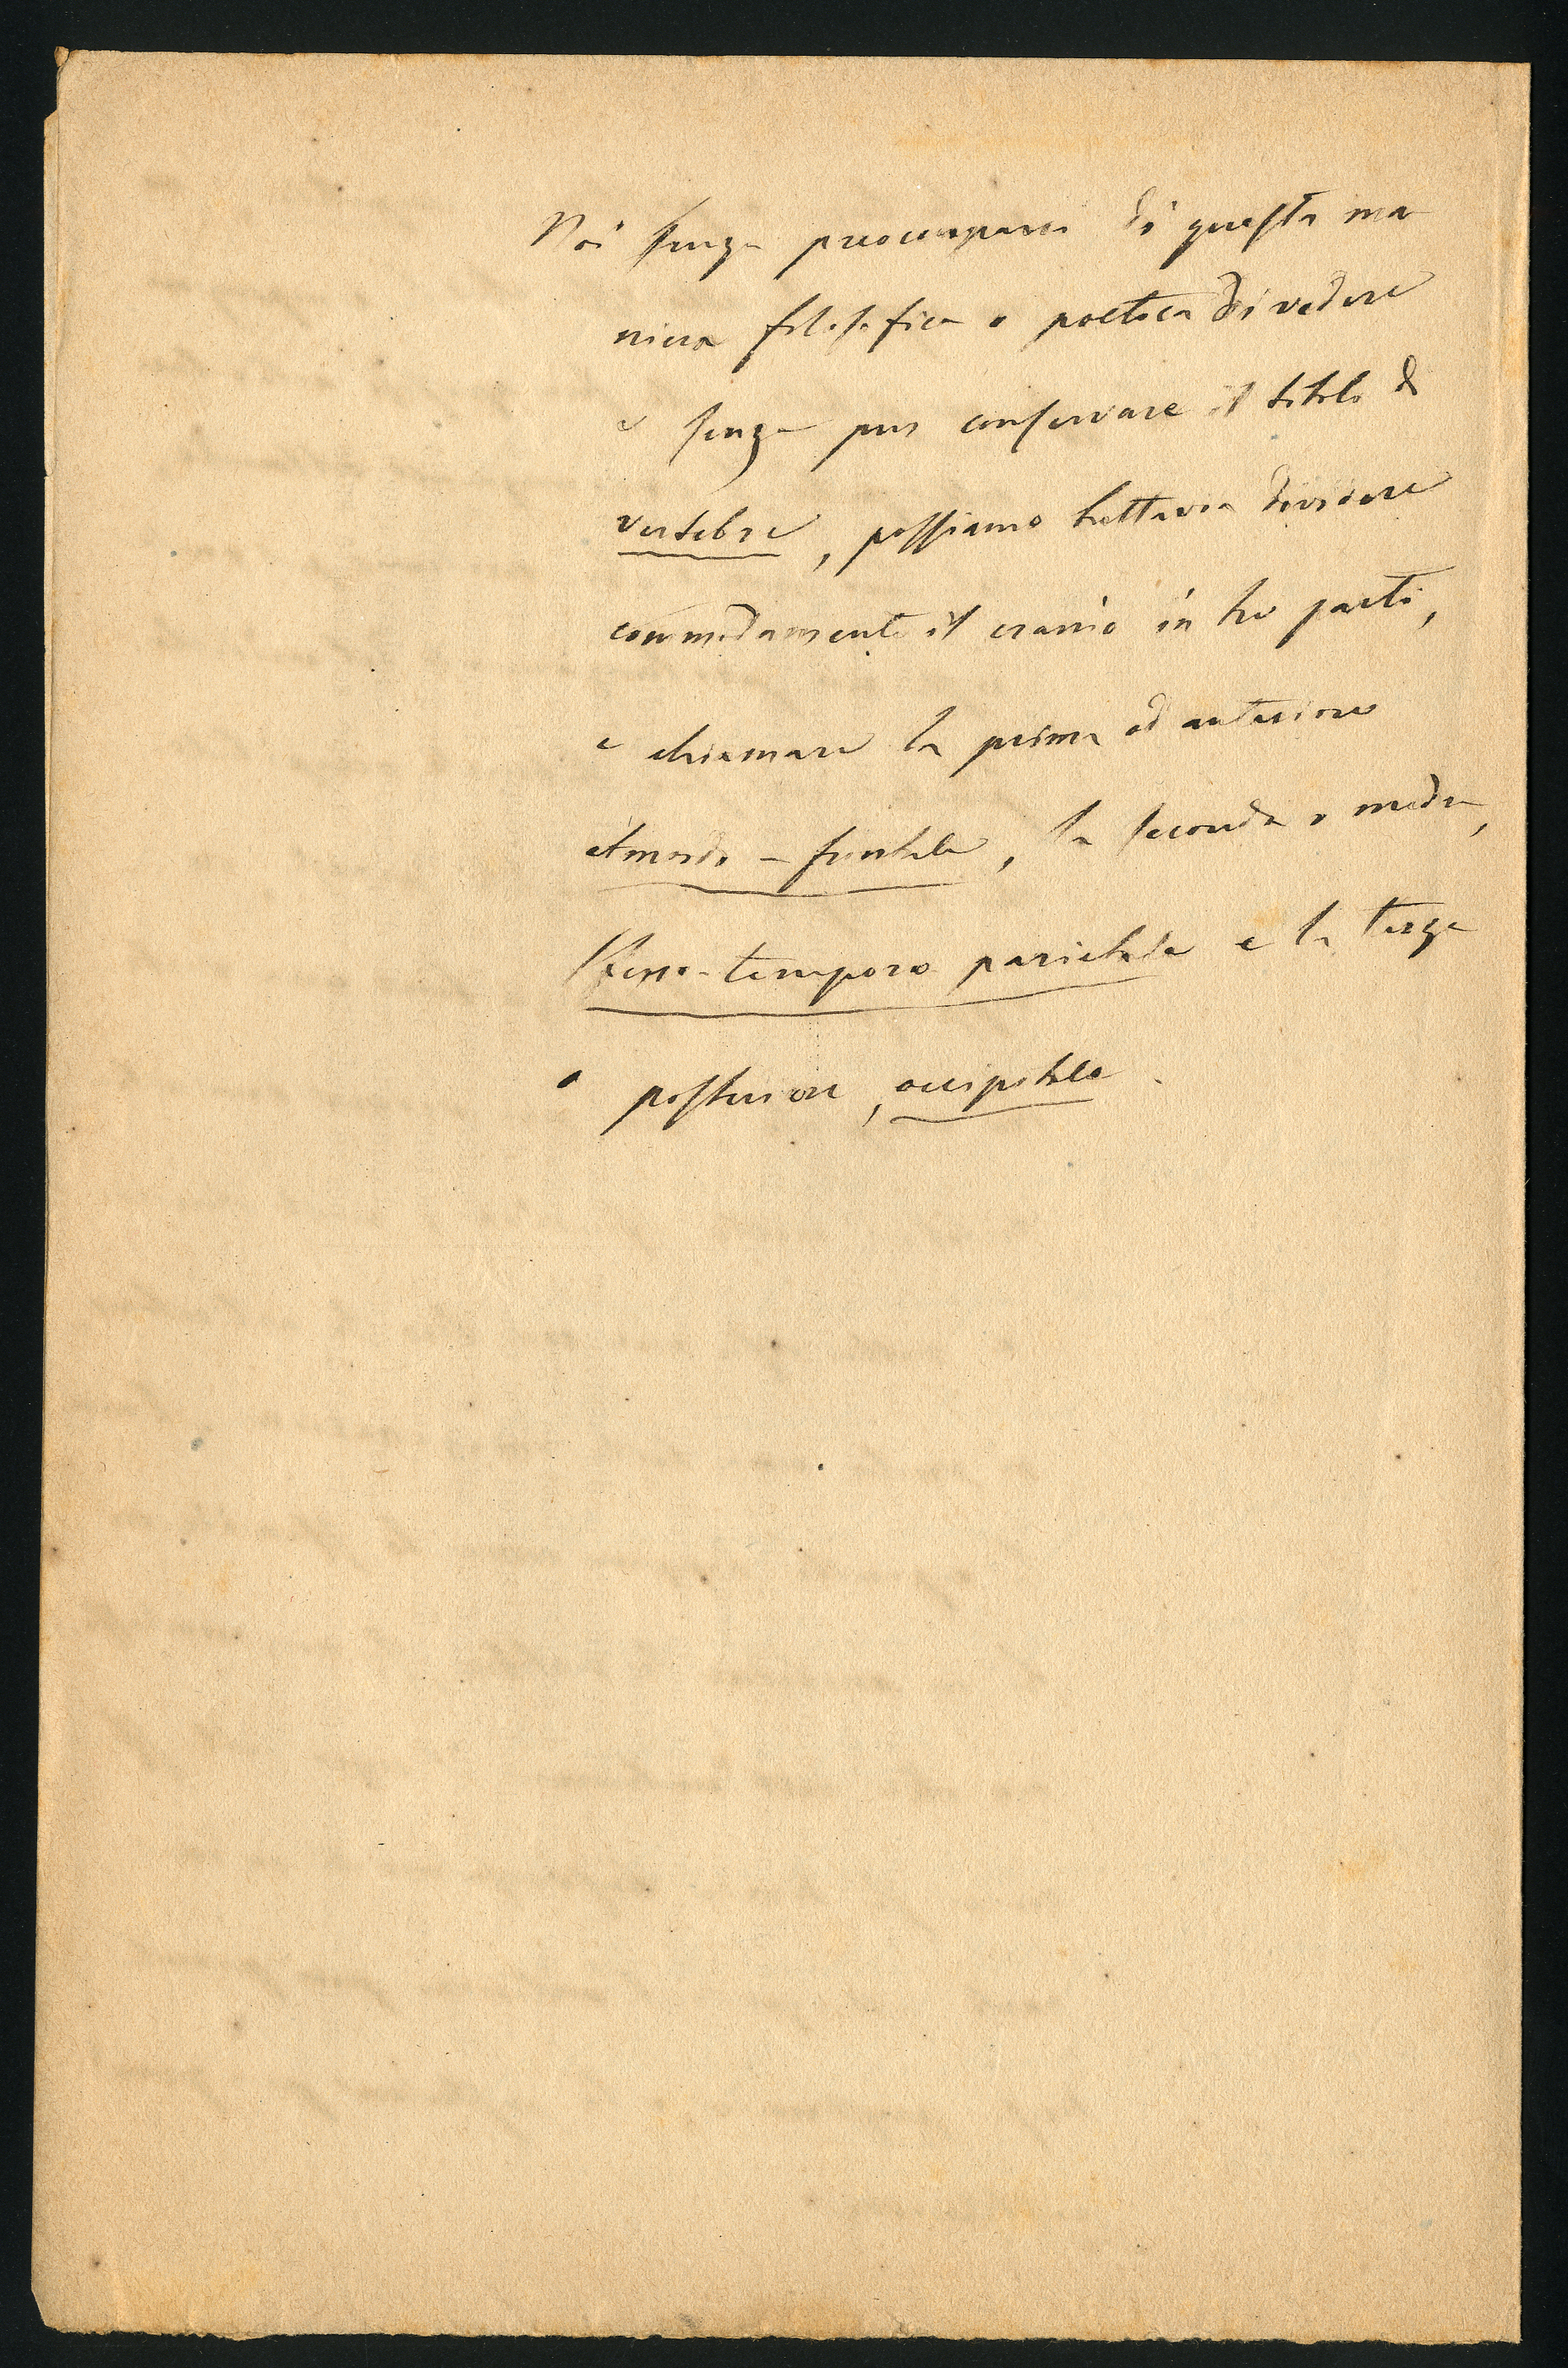 Noi senza preoccuparci di questa ma
niera filosofica o poetica di vedere
e senza pur conservare il titolo di
vertebre, possiamo tuttavia dividere
commodamente il cranio in tre parti,
e chiamare la prima od anteriore
etmoido-frontale, la seconda o media,
sfeno-temporo parietale e la terza
o posteriore, occipitale.